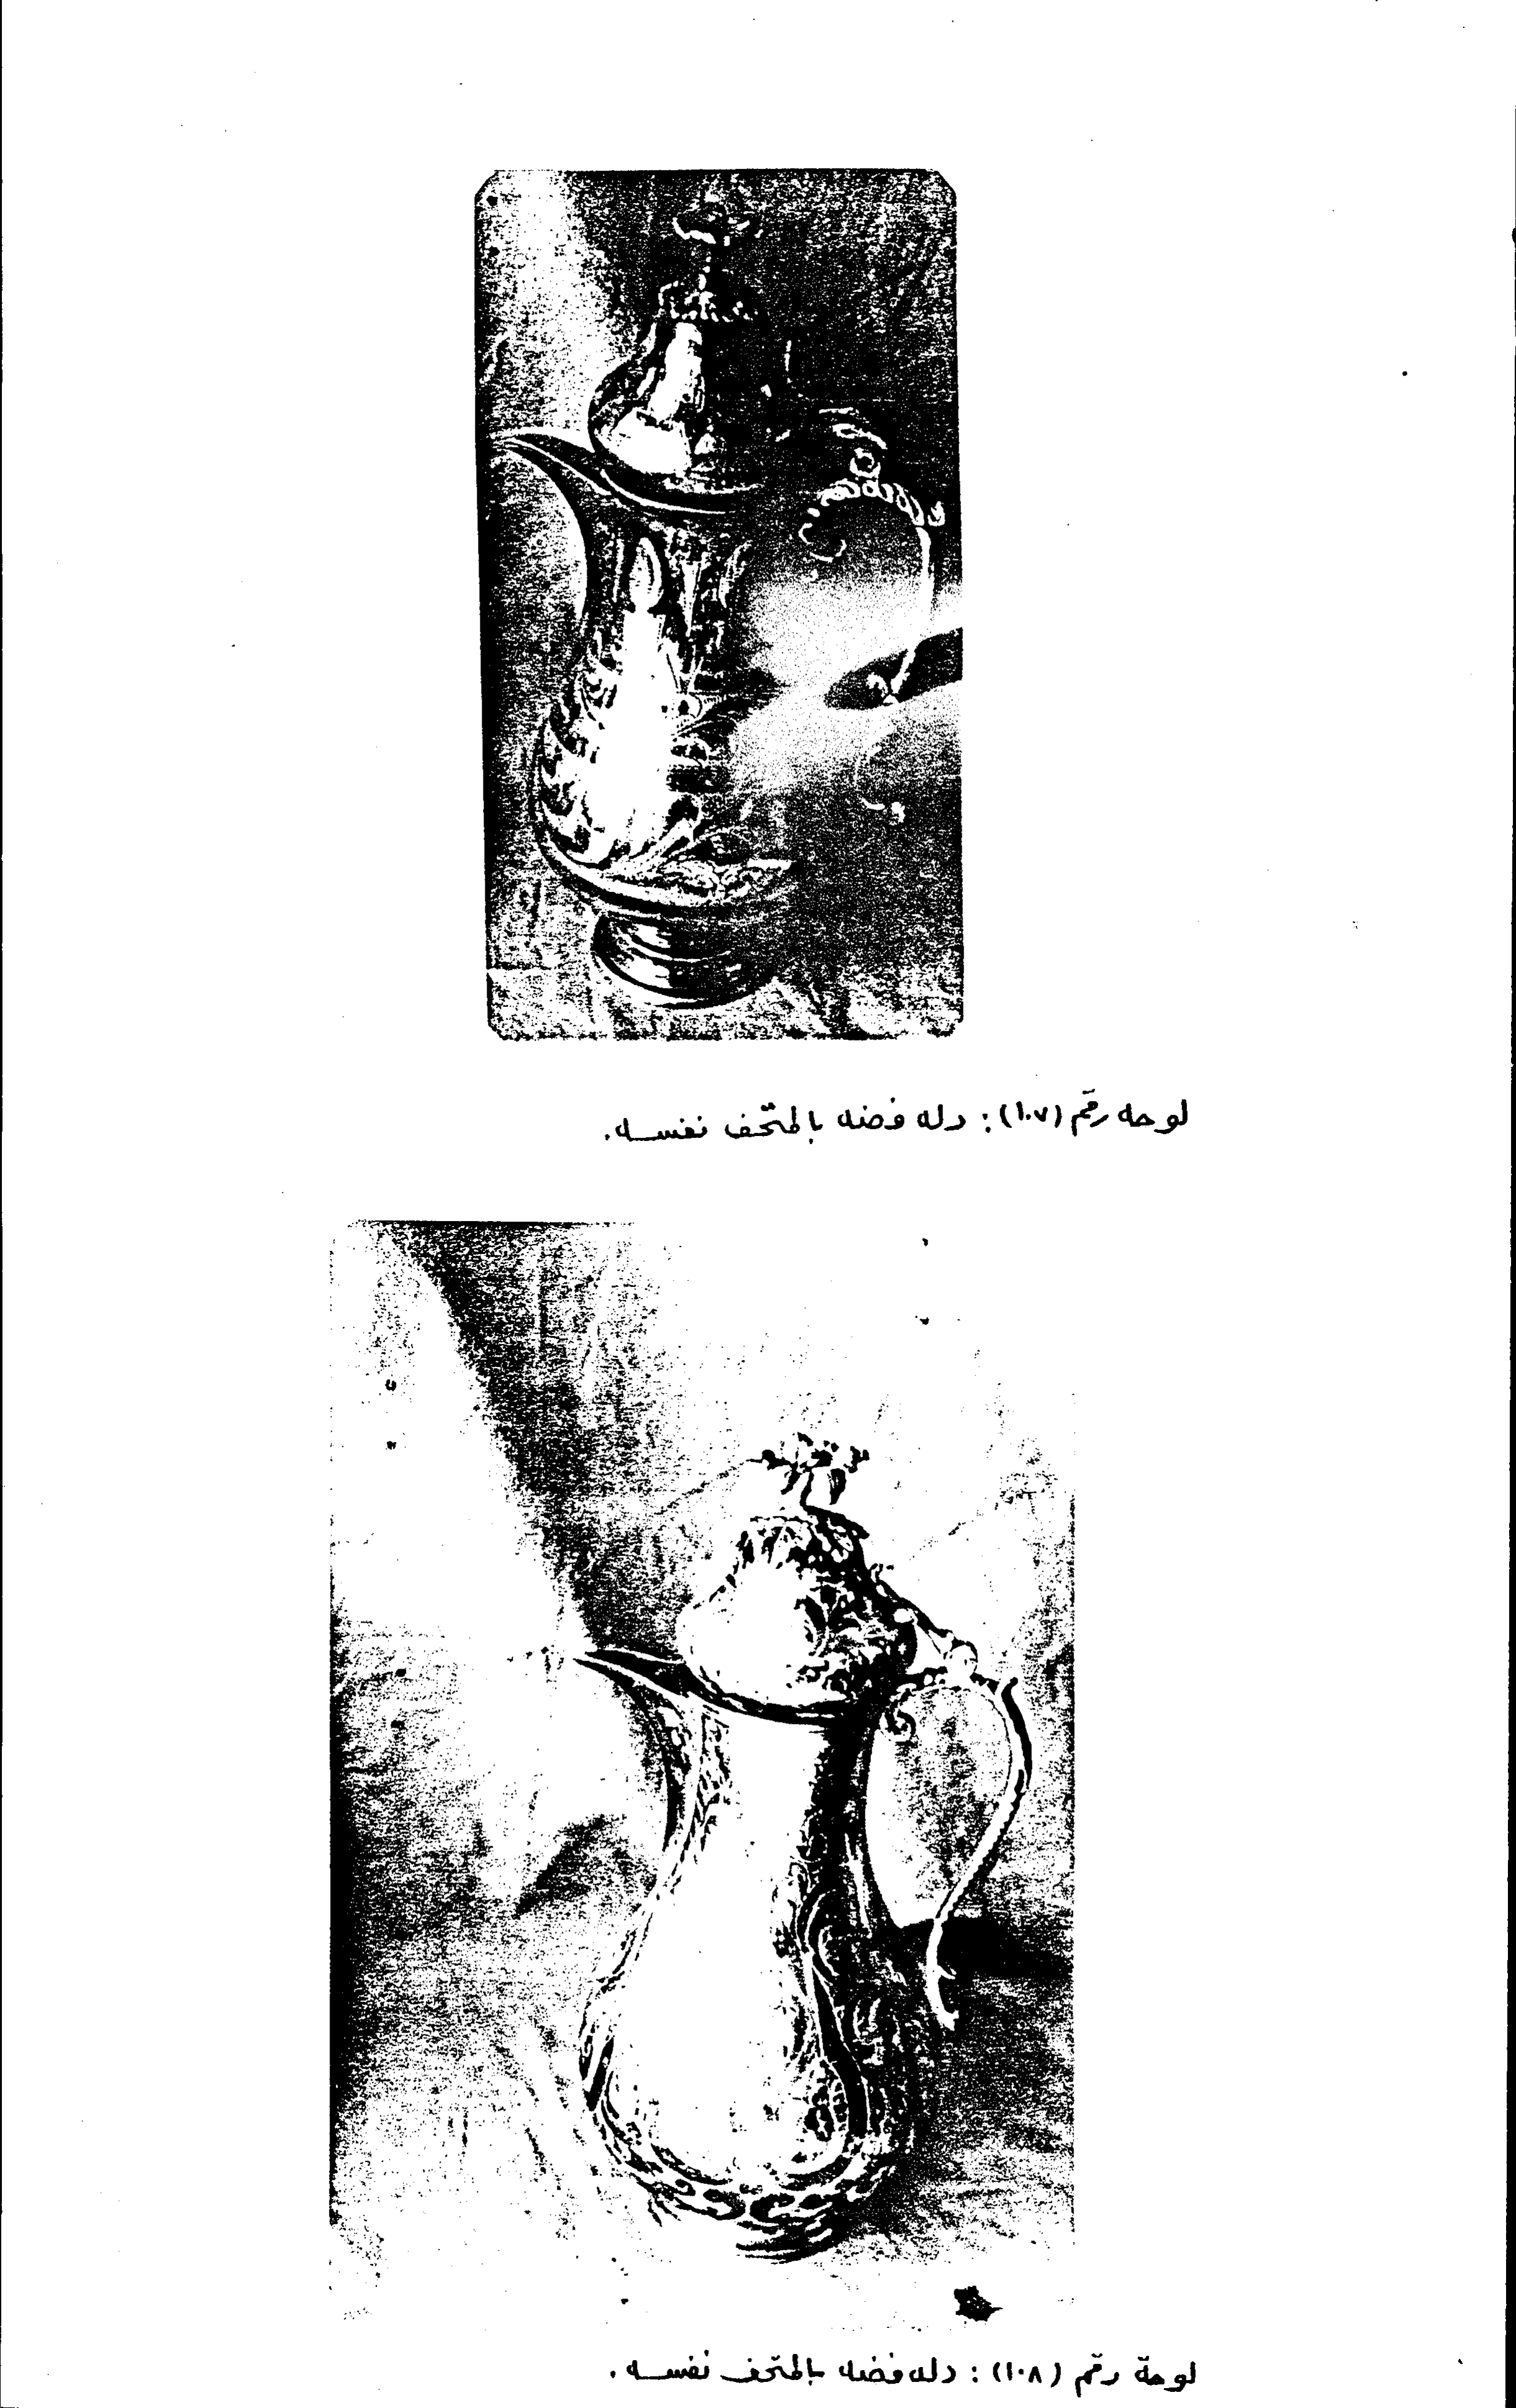 لوحه رقم (١٠٧): دله فضه بالمتحف نفسه.
لوحة رقم (١٠٨): دله فضه بالمتحف نفسه.